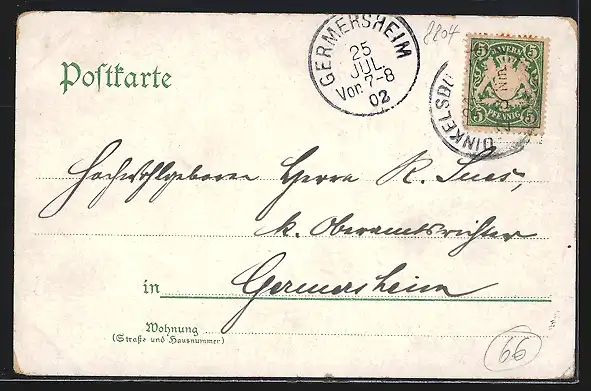 8804
GERMERSHEIM
25
JUL
Vor. 7-8
02
BAYERN
5 5
5 5
PFENNIG
DINKELSBÜ
Postkarte
Hochwohlgeboren Herrn R.
k. Oberamtsrichter
in Germersheim
Wohnung
(Straße und Hausnummer)
66